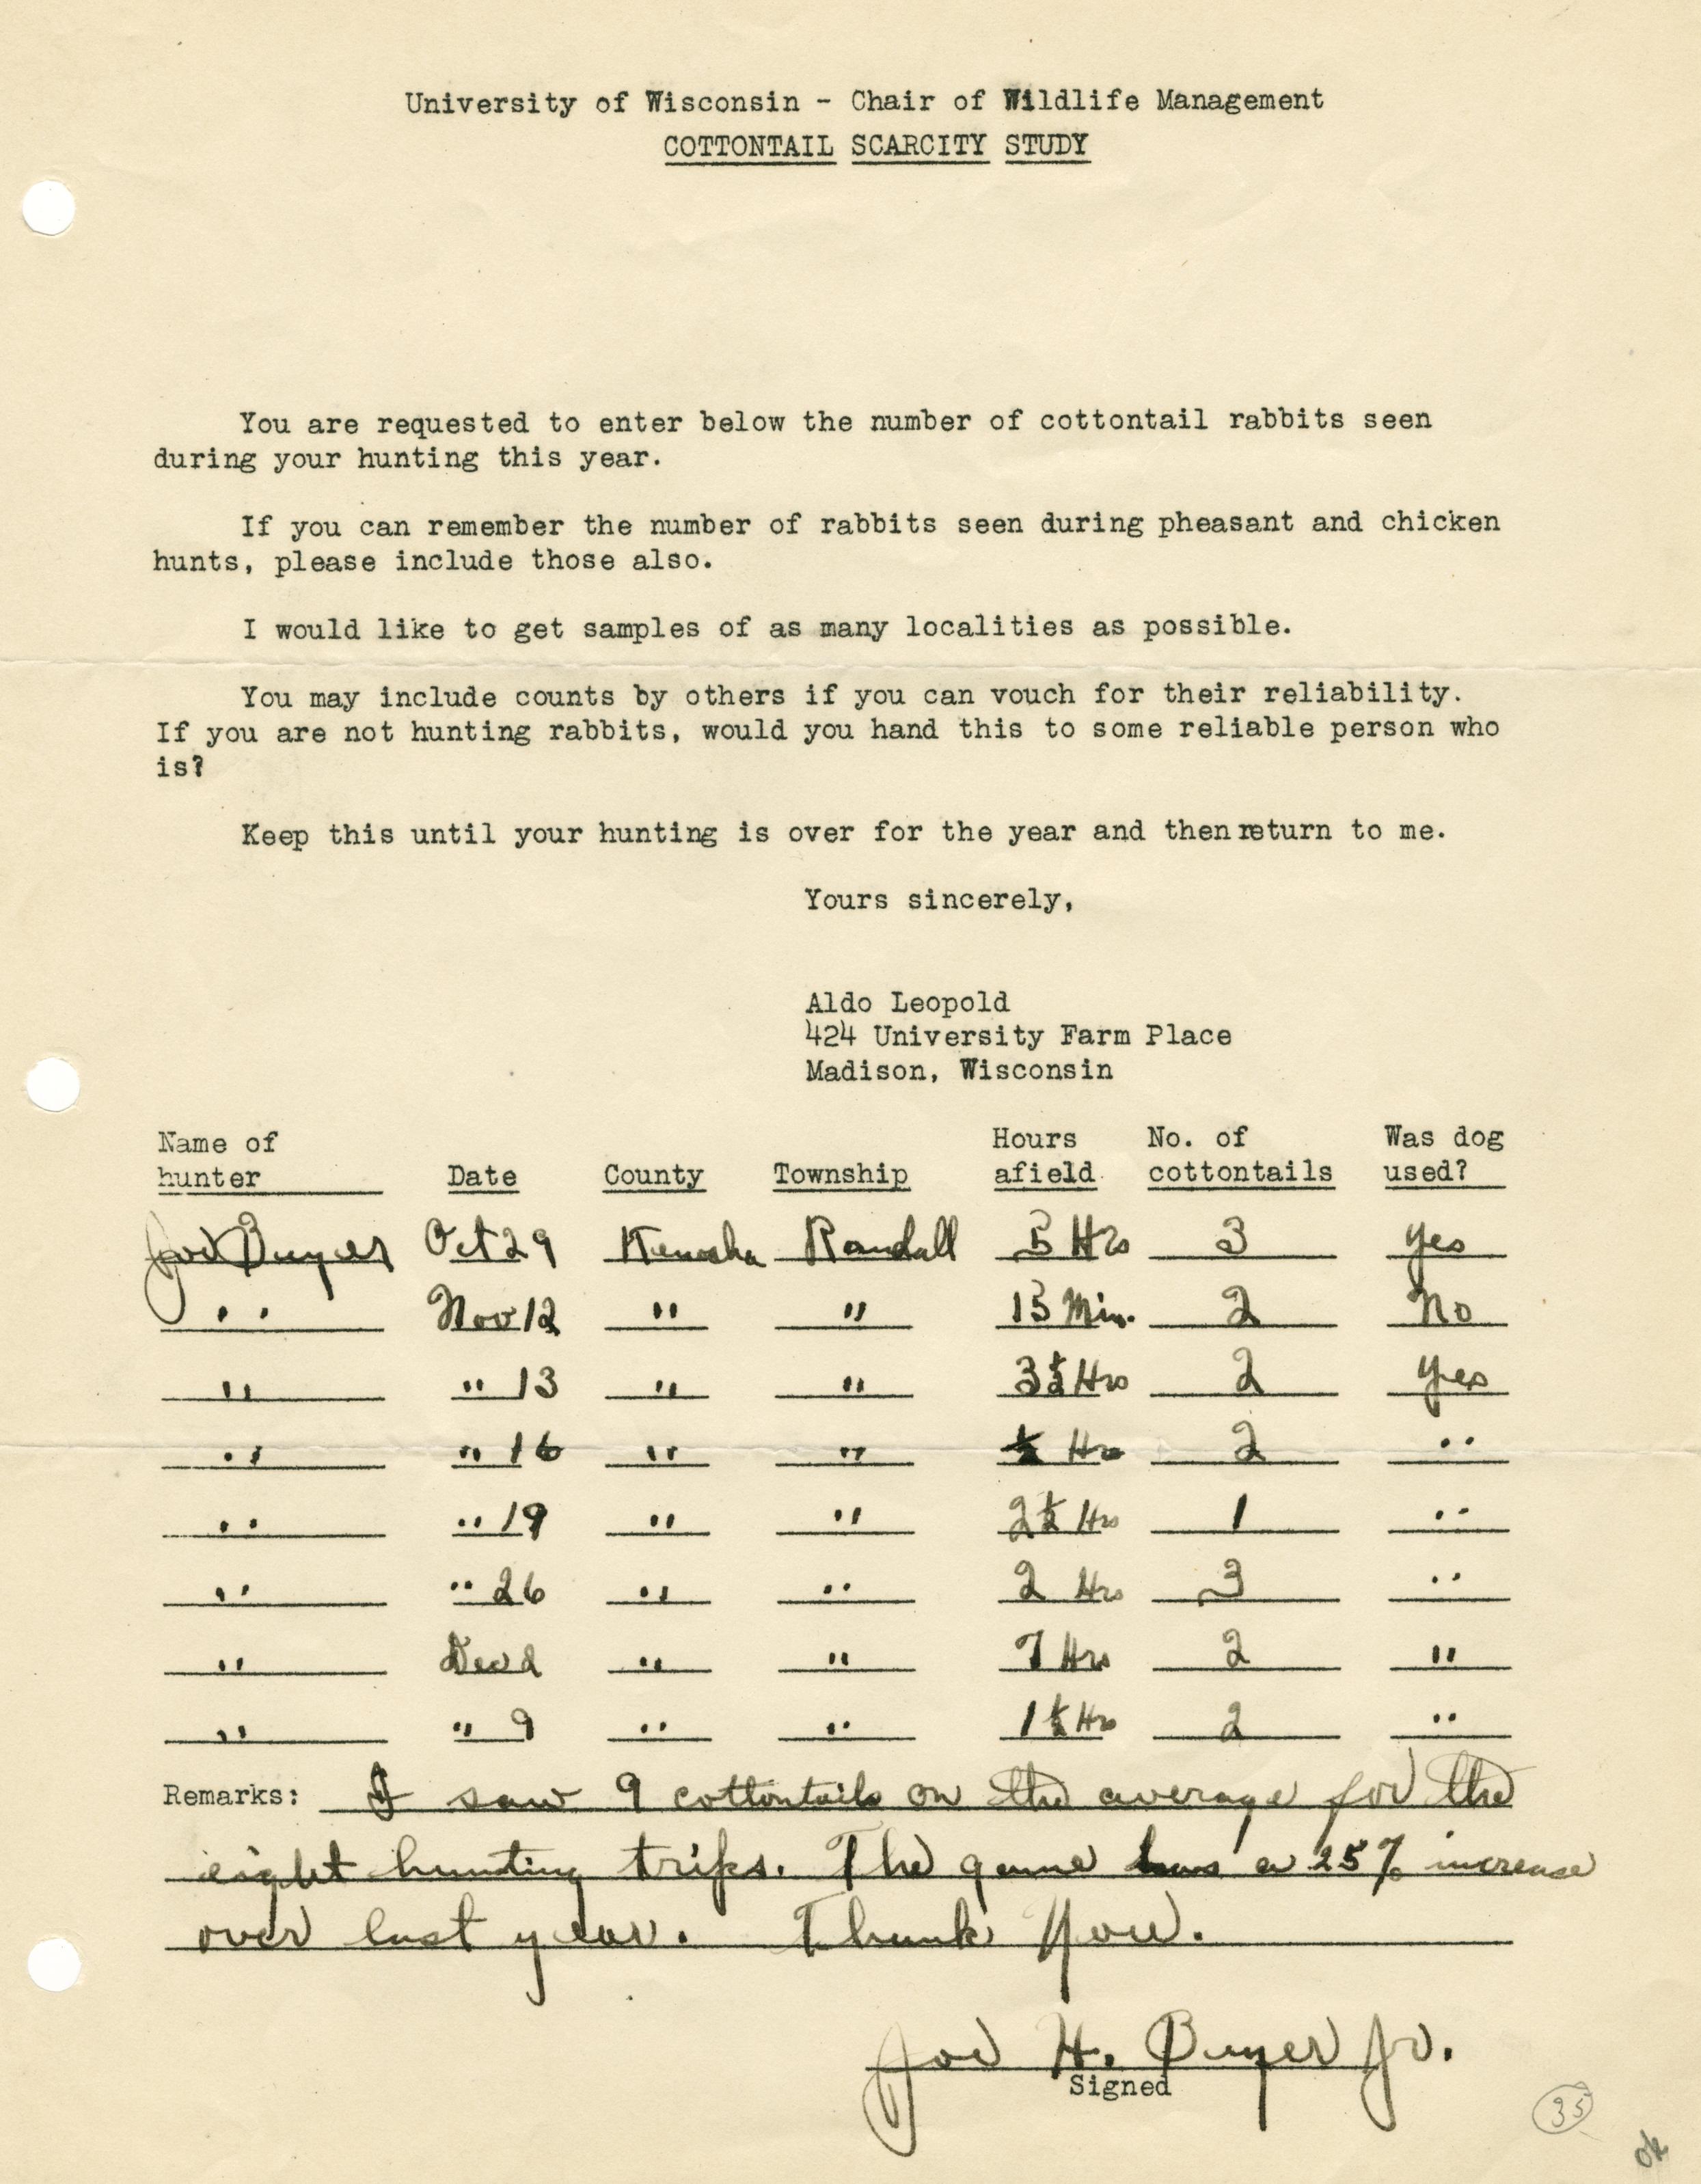 University of Wisconsin - Chair of Wildlife Management
COTTONTAIL SCARCITY STUDY
You are requested to enter below the number of cottontail rabbits seen
during your hunting this year.
If you can remember the number of rabbits seen during pheasant and chicken
hunts, please include those also.
I would like to get samples of as many localities as possible.
You may include counts by others if you can vouch for their reliability.
If you are not hunting rabbits, would you hand this to some reliable person who
is?
Keep this until your hunting is over for the year and then return to me.
Yours sincerely,
Aldo Leopold
424 University Farm Place
Madison, Wisconsin
Name of hunter Date County Township Hours afield No. of cottontails Was dog used?
Joe Buyer Oct 29 Kenosha Randall 5 Hrs 3 Yes
" Nov 12 " " 15 Min. 2 No
" " 13 " " 3½ Hrs 2 Yes
" " 16 " " ½ Hr 2 "
" " 19 " " 2½ Hrs 1 "
" " 26 " " 2 Hrs 3 "
" Dec 2 " " 7 Hrs 2 "
" " 9 " " 1½ Hrs 2 "
Remarks: I saw 9 cottontails on the average for the
eight hunting trips. The game has a 25% increase
over last year. Thank You.
Joe H. Buyer Jr.
Signed
35